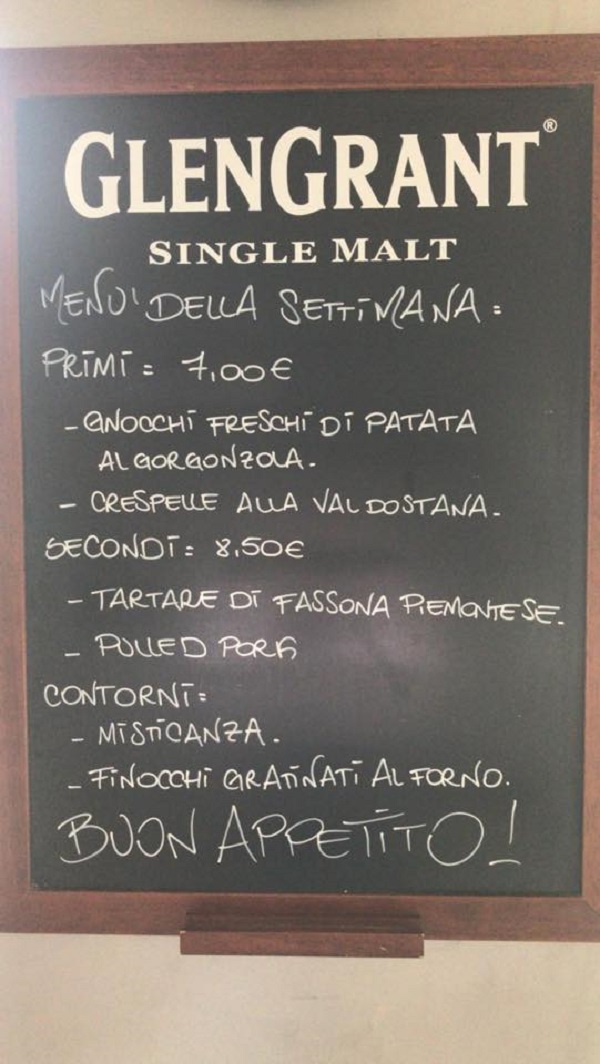 GLENGRANT®
SINGLE MALT
MENU' DELLA SETTIMANA:
PRIMI: 7,00€
- GNOCCHI FRESCHI DI PATATA
AL GORGONZOLA.
- CRESPELLE ALLA VALDOSTANA.
SECONDI: 8,50€
- TARTARE DI FASSONA PIEMONTESE.
- PULLED PORK
CONTORNI:
- MISTICANZA.
- FINOCCHI GRATINATI AL FORNO.
BUON APPETITO!